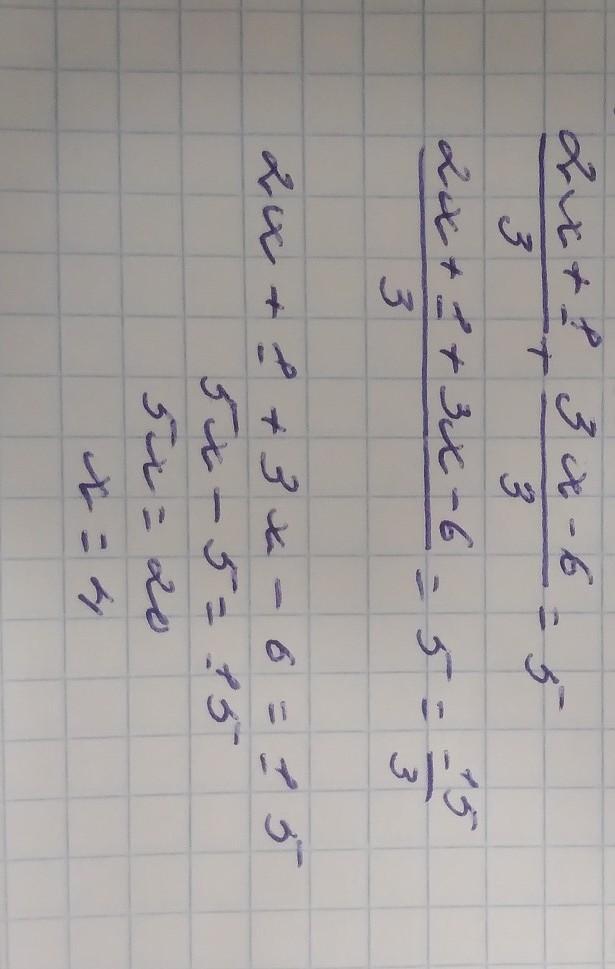 (2x+1)/3 + (3x-6)/3 = 5
(2x+1+3x-6)/3 = 5 = 15/3
2x+1+3x-6=15
5x-5=15
5x=20
x=4